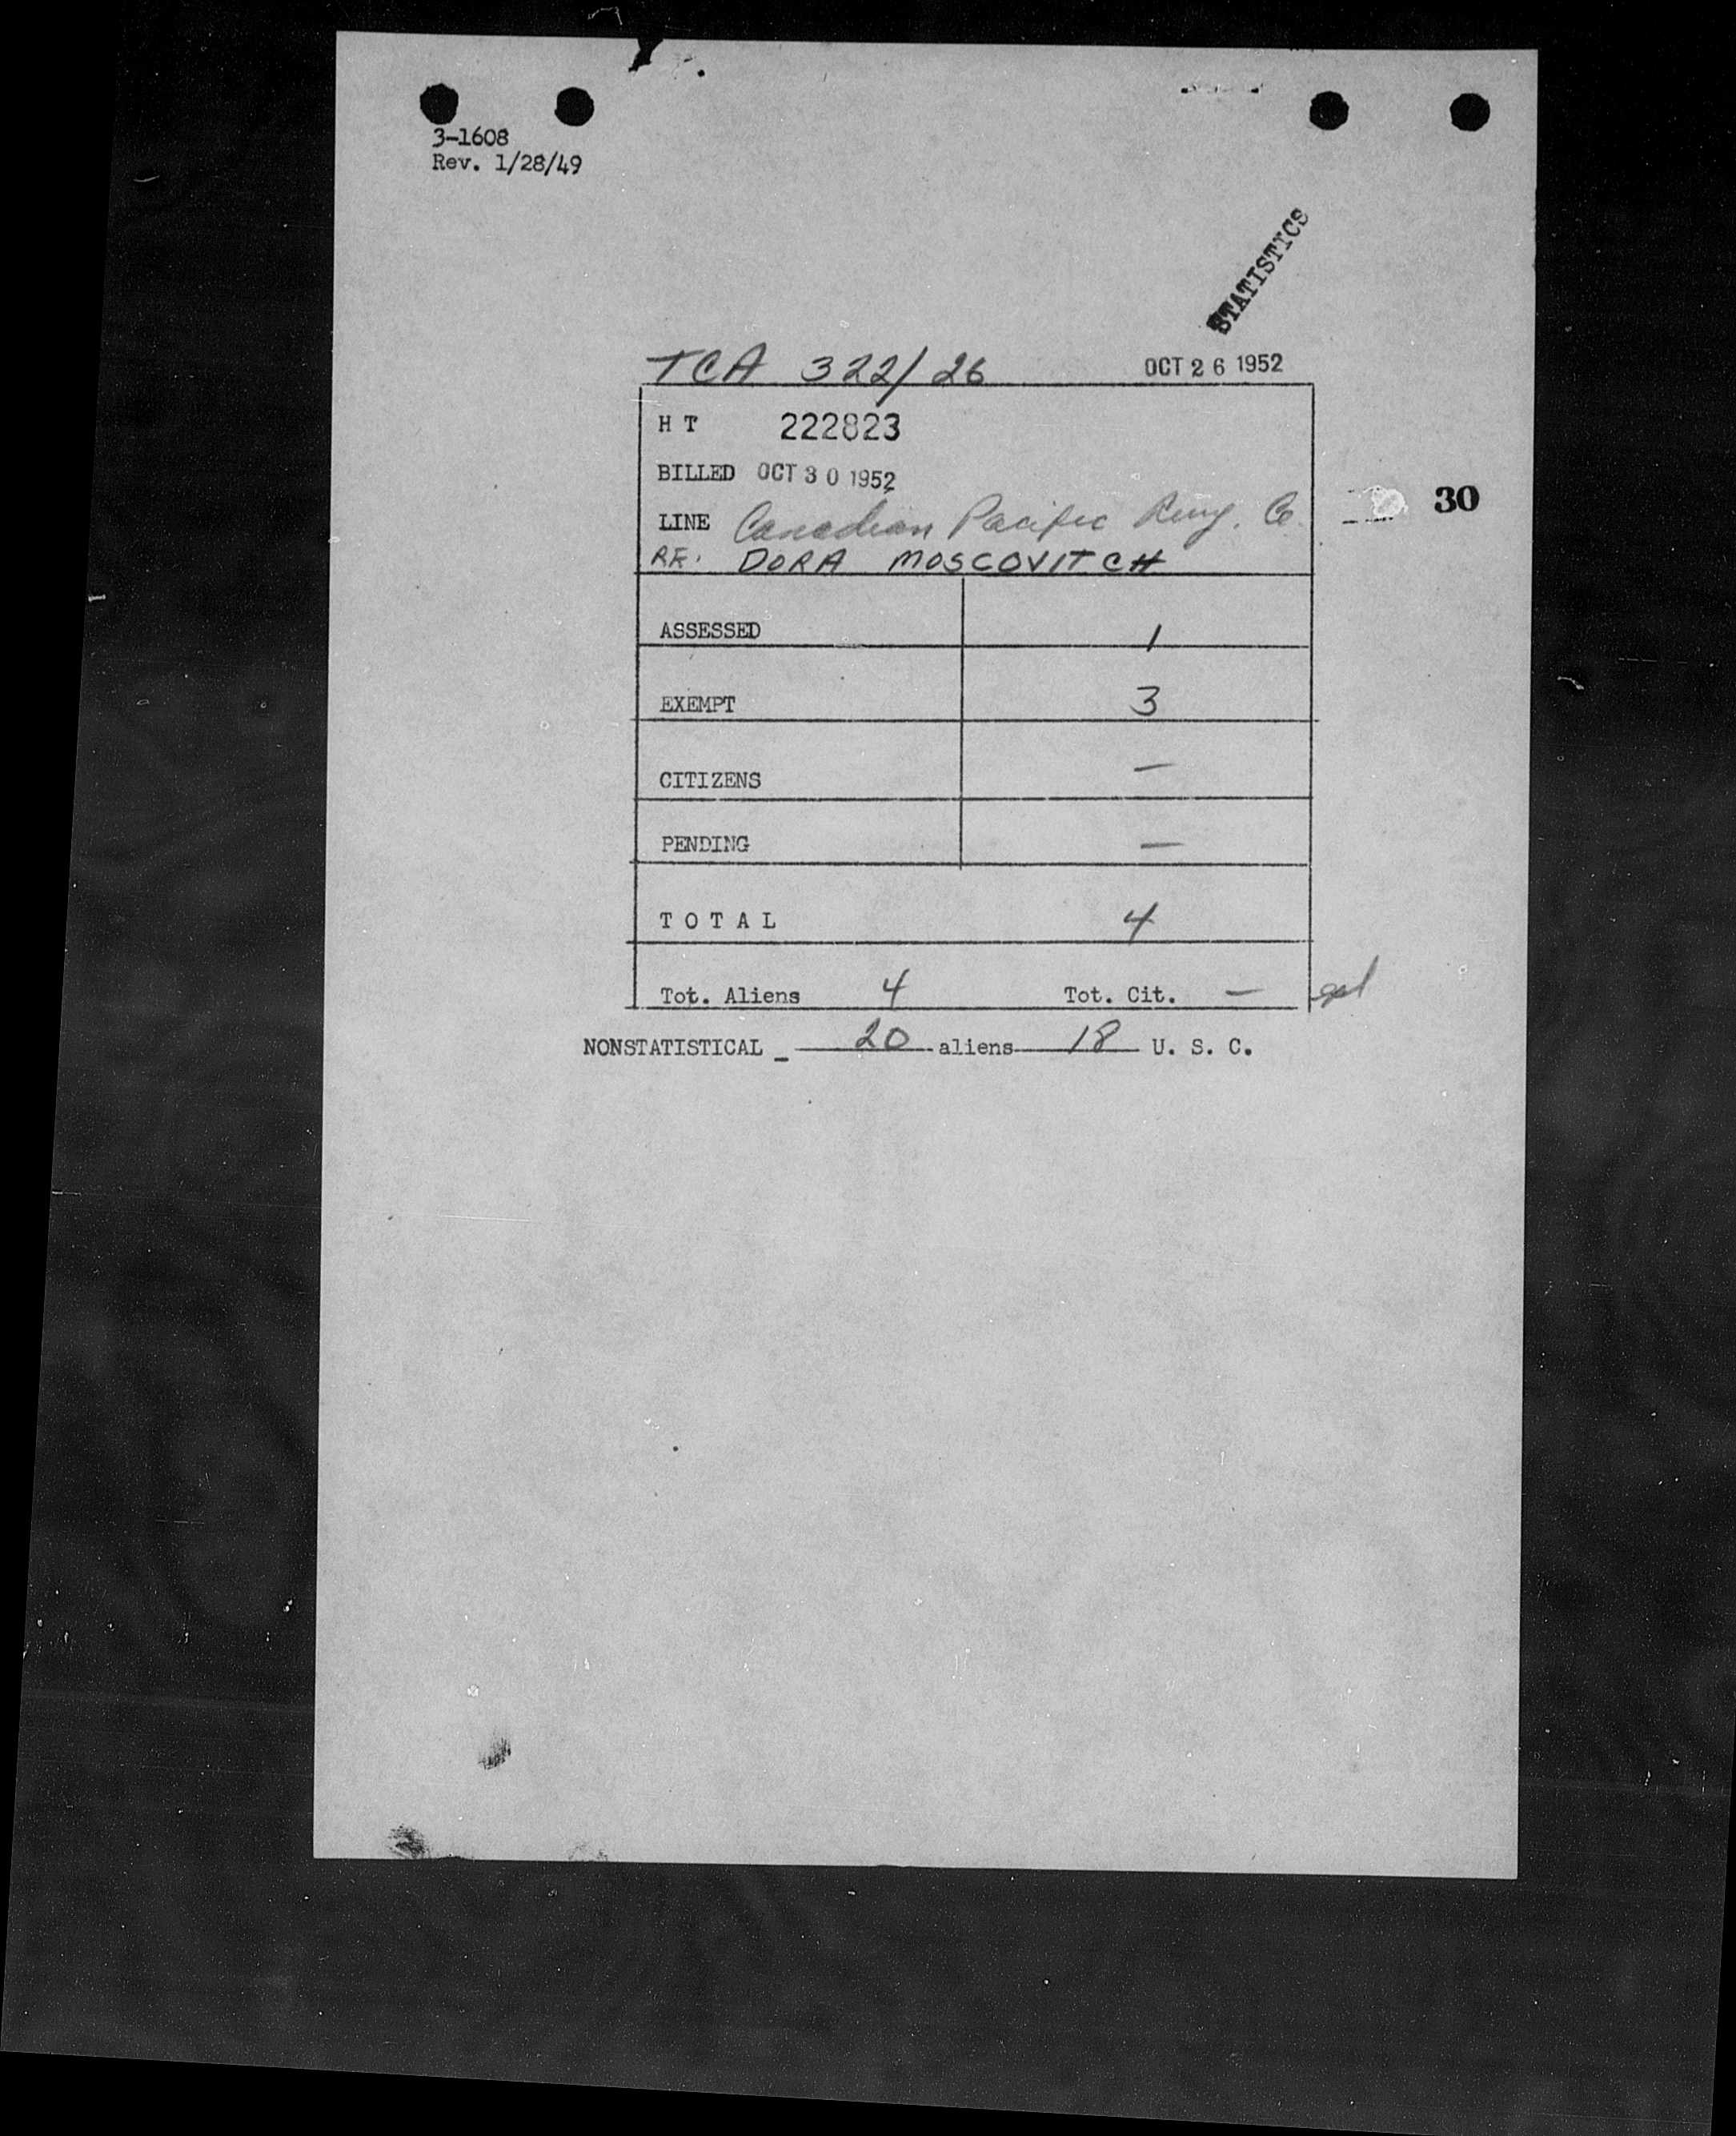 3-1608
Rev. 1/28/49
STATISTICS
TCA 322/26 OCT 26 1952
H T 222823
BILLED OCT 30 1952
LINE Canadian Pacific Co.
30
RE: DORA MOSCOVITCH
ASSESSED 1
EXEMPT 3
CITIZENS —
PENDING —
T O T A L 4
Tot. Aliens 4 Tot. Cit. —
NONSTATISTICAL _ 20 aliens 18 U. S. C.